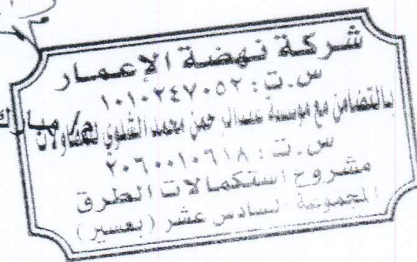 شركة نهضة الإعمار
س.ت: ١٠١٠٢٤٧٠٥٢
بالتضامن مع موسسة عبدالرحمن محمد للمقاولات
س.ت: ٢٠٦٠٠١٠٦١٨
مشروع استكمالات الطرق
المجموعة السادس عشر (بعسير)